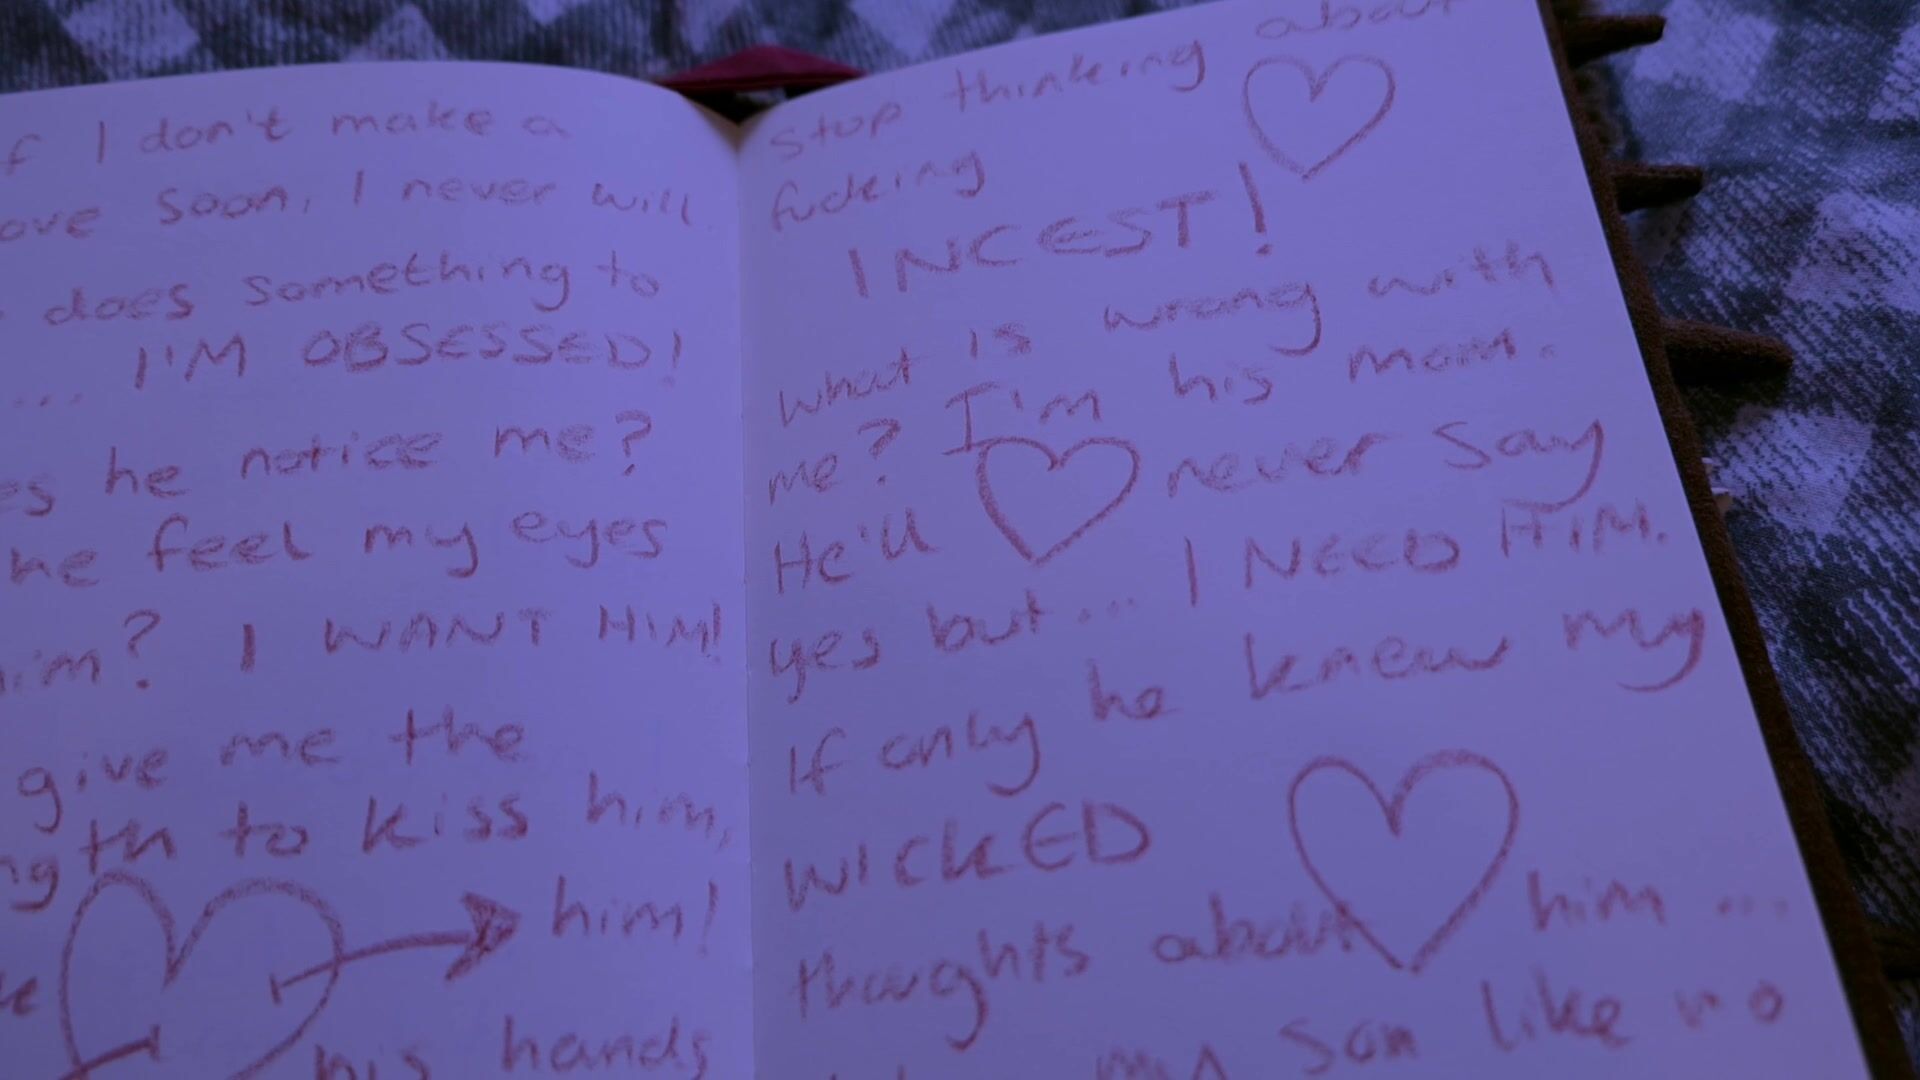 f I don't make a
ove soon, I never will
does something to
... I'M OBSESSED!
es he notice me?
he feel my eyes
him? I WANT HIM!
give me the
ngth to kiss him,
him!
his hands
stop thinking about
fucking
INCEST!
What is wrong with
me? I'm his mom.
He'll never say
yes but... I NEED HIM.
If only he knew my
WICKED
thoughts about him...
my son like no